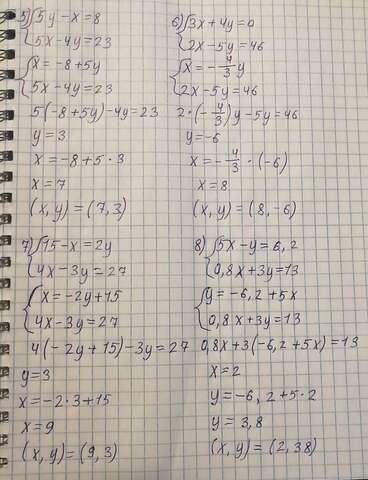 5) { 5y - x = 8
5x - 4y = 23
{ x = -8 + 5y
5x - 4y = 23
5(-8 + 5y) - 4y = 23
y = 3
x = -8 + 5 · 3
x = 7
(x, y) = (7, 3)
6) { 3x + 4y = 0
2x - 5y = 46
{ x = - 4/3 y
2x - 5y = 46
2 · (- 4/3)y - 5y = 46
y = -6
x = - 4/3 · (-6)
x = 8
(x, y) = (8, -6)
7) { 15 - x = 2y
4x - 3y = 27
{ x = -2y + 15
4x - 3y = 27
4(-2y + 15) - 3y = 27
y = 3
x = -2 · 3 + 15
x = 9
(x, y) = (9, 3)
8) { 5x - y = 6,2
0,8x + 3y = 13
{ y = -6,2 + 5x
0,8x + 3y = 13
0,8x + 3(-6,2 + 5x) = 13
x = 2
y = -6,2 + 5 · 2
y = 3,8
(x, y) = (2, 38)